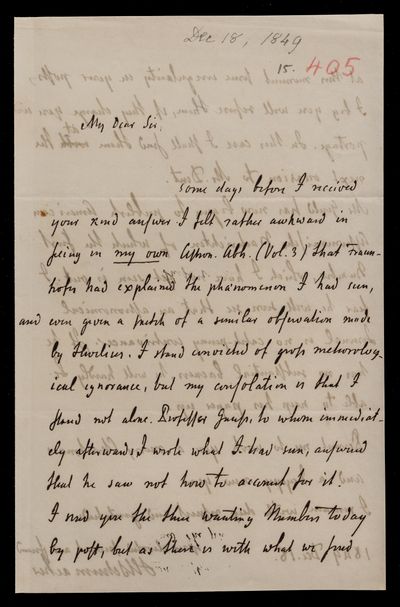 Dec 18, 1849
15. 405
My Dear Sir.
some days before I received
your kind answer I felt rather awkward in
seeing in my own Astron. Abh. (Vol. 3) that Fraun-
hofer had explained the phænomenon I had seen,
and even given a sketch of a similar observation made
by Hevelius. I stand convicted of gross meteorolog-
ical ignorance, but my consolation is that I
stand not alone. Professor Gauss, to whom immediat-
ely afterwards I wrote what I had seen, answered
that he saw not how to account for it.
I send you the three wanting Numbers today
by post, but as there is with what we send